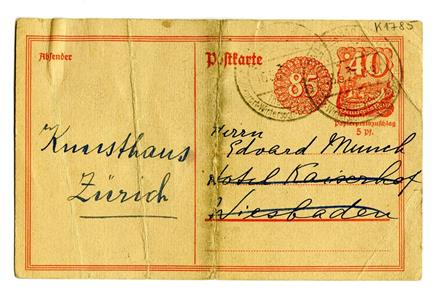 K1785
Absender
Postkarte
85
40
Papierpreiszuschlag
5 Pf.
Kunsthaus
Zürich
Herrn
Edvard Munch
Hotel Kaiserhof
Wiesbaden